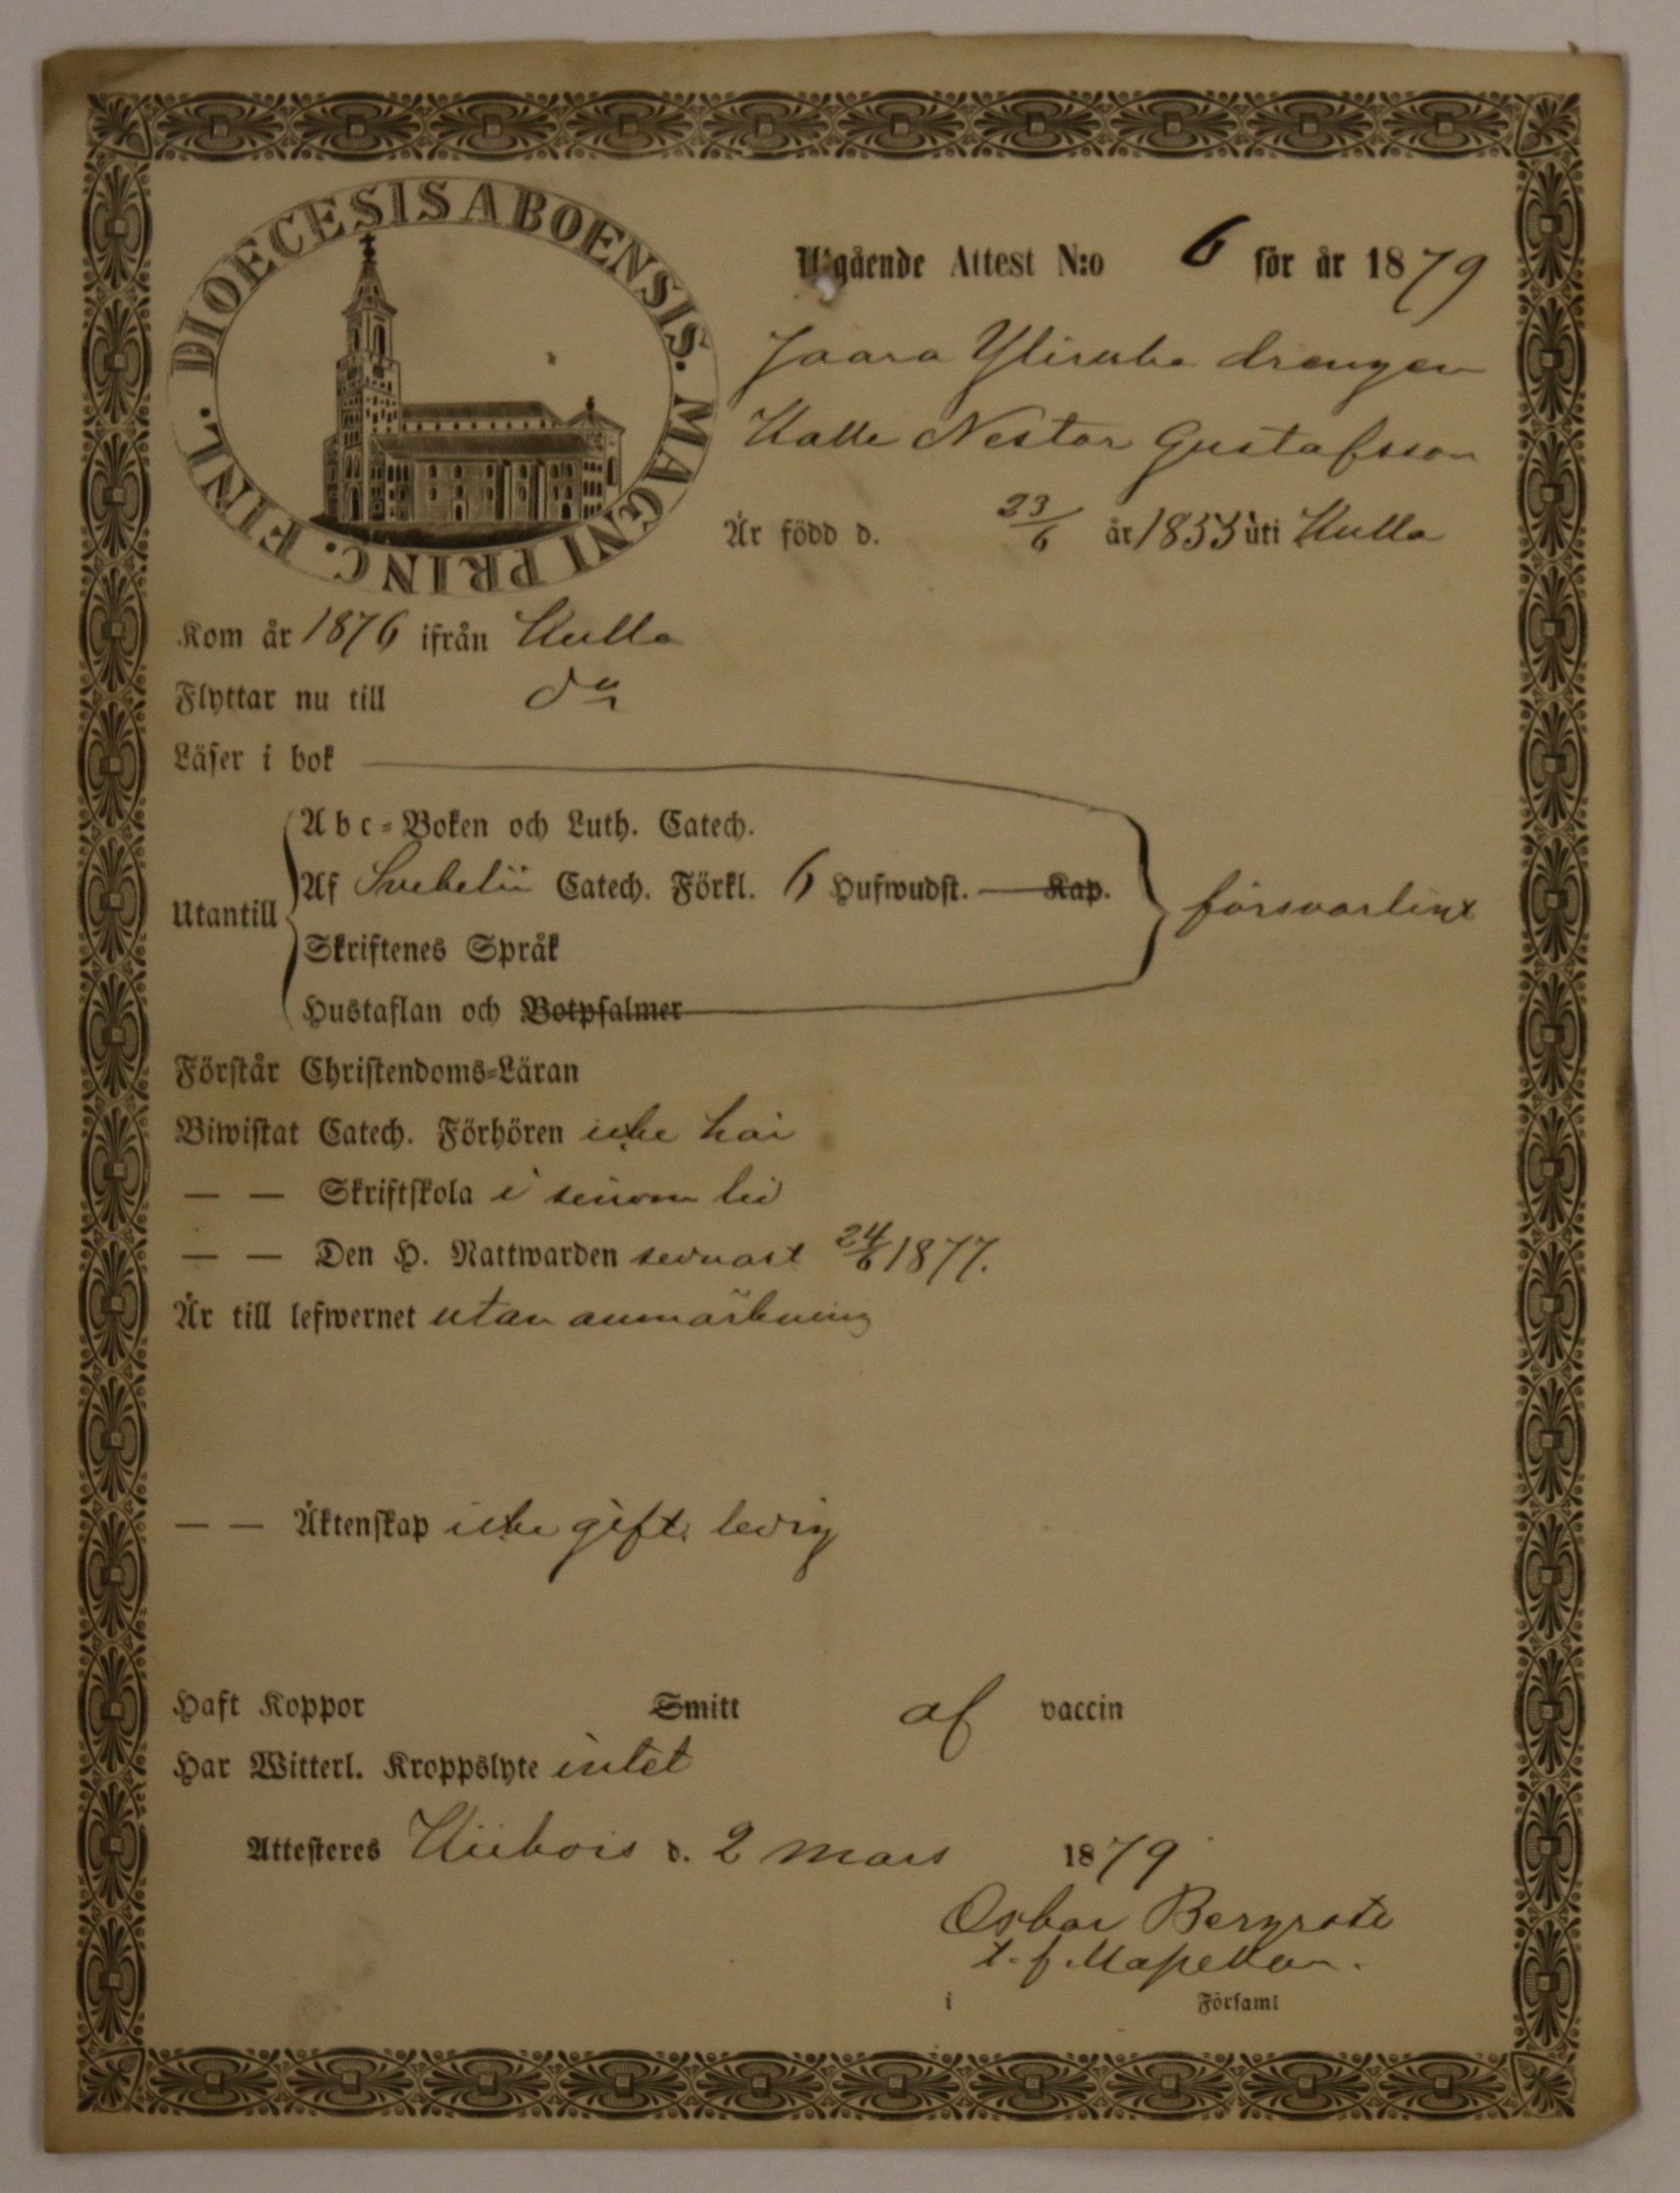 DIOECESIS ABOENSIS. MAGNI PRINC. FINL.
Utgående Attest N:o 6 för år 1879
Jaara Yliruka drengen
Kalle Nestor Gustafsson
Är född d. 23/6 år 1853 uti Kulla
Kom år 1876 ifrån Kulla
Flyttar nu till do
Läser i bok
Abc-Boken och Luth. Catech.
Utantill Af Svebelii Catech. Förkl. 6 Hufwudst. — Kap. försvarligt
Skriftenes Språk
Hustaflan och Botpsalmer
Förstår Christendoms-Läran
Biwistat Catech. Förhören icke här
— — Skriftskola i sinom tid
— — Den H. Nattwarden sednast 24/6 1877.
Är till lefwernet utan anmärkning
— — Äktenskap icke gift, ledig
Haft Koppor Smitt af vaccin
Har Witterl. Kroppslyte intet
Attesteres Kiikois d. 2 mars 1879
Oskar Bergroth
t. f. Kapellan.
i Församl